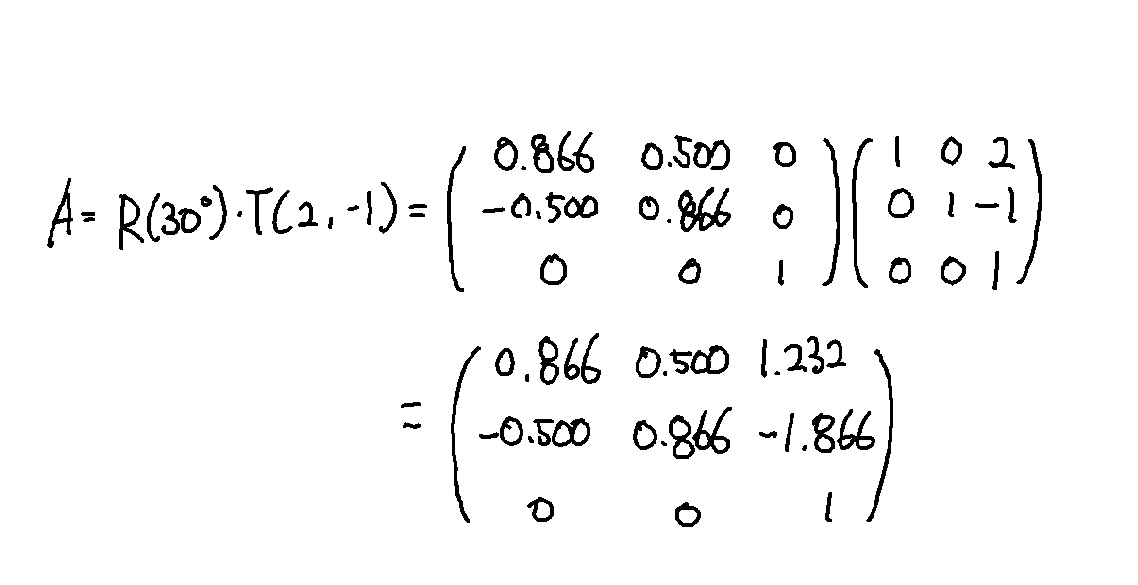 A = R(30°)·T(2, -1) = ( 0.866 0.500 0 ) ( 1 0 2 )
-0.500 0.866 0 0 1 -1
0 0 1 0 0 1
= ( 0.866 0.500 1.232 )
-0.500 0.866 -1.866
0 0 1